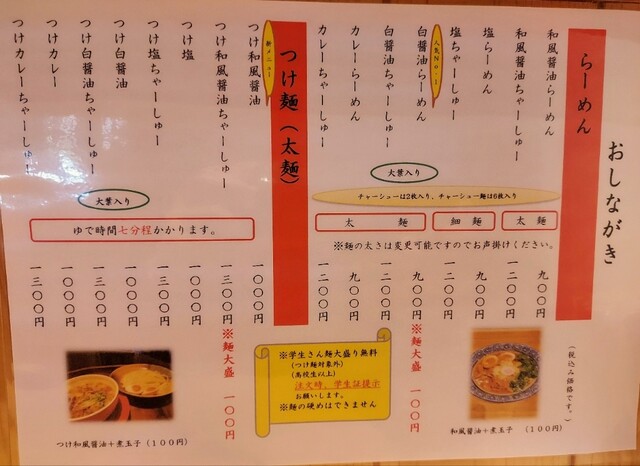 おしながき
らーめん
和風醤油らーめん 九〇〇円
和風醤油ちゃーしゅー 一二〇〇円
塩らーめん 九〇〇円
塩ちゃーしゅー 一二〇〇円
人気No.1
白醤油らーめん 九〇〇円
白醤油ちゃーしゅー 一二〇〇円
カレーらーめん 九〇〇円
カレーちゃーしゅー 一二〇〇円
大葉入り
チャーシューは2枚入り、チャーシュー麺は6枚入り
太麺
細麺
太麺
※麺の太さは変更可能ですのでお声掛けください。
※麺大盛 一〇〇円
(税込み価格です。)
和風醤油+煮玉子 (100円)
つけ麺(太麺)
新メニュー
つけ和風醤油 一〇〇〇円
つけ和風醤油ちゃーしゅー 一三〇〇円
つけ塩 一〇〇〇円
つけ塩ちゃーしゅー 一三〇〇円
つけ白醤油 一〇〇〇円
つけ白醤油ちゃーしゅー 一三〇〇円
つけカレー 一〇〇〇円
つけカレーちゃーしゅー 一三〇〇円
大葉入り
ゆで時間七分程かかります。
※麺大盛 一〇〇円
※学生さん麺大盛り無料
(つけ麺対象外)
(高校生以上)
注文時、学生証提示
お願いします。
※麺の硬めはできません
つけ和風醤油+煮玉子(100円)